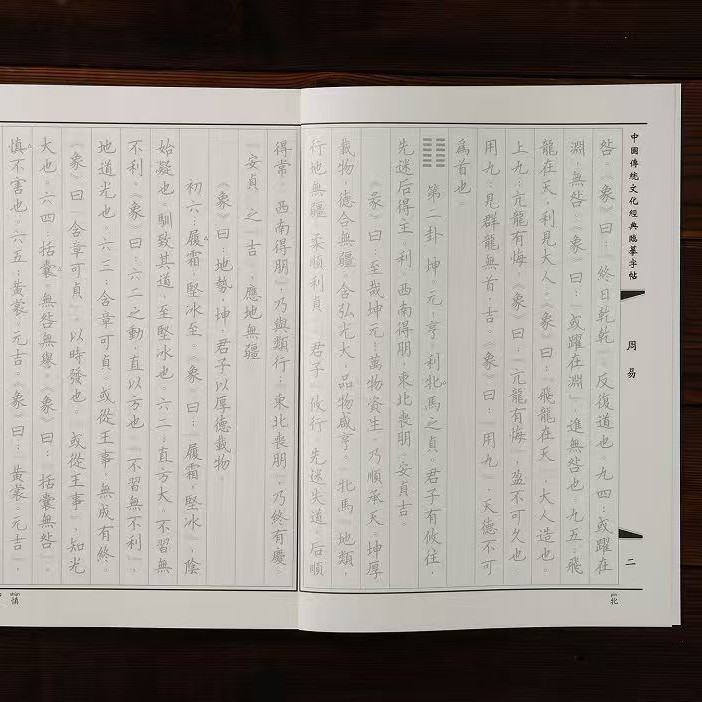 中國傳統文化經典臨摹字帖
周易
二
咎。《象》曰：『終日乾乾』，反復道也。九四：或躍在
淵，無咎。《象》曰：『或躍在淵』，進無咎也。九五：飛
龍在天，利見大人。《象》曰：『飛龍在天』，大人造也。
上九：亢龍有悔。《象》曰：『亢龍有悔』，盈不可久也。
用九：見群龍無首，吉。《象》曰：『用九』，天德不可
爲首也。
第二卦 坤。元，亨，利牝馬之貞。君子有攸往，
先迷后得主。利。西南得朋，東北喪朋。安貞吉。
《彖》曰：至哉坤元，萬物資生，乃順承天。坤厚
載物，德合無疆。含弘光大，品物咸亨。『牝馬』地類，
行地無疆，柔順利貞。『君子』攸行，先迷失道，后順
得常。『西南得朋』，乃與類行；『東北喪朋』，乃終有慶。
『安貞』之『吉』，應地無疆。
《象》曰：地勢，坤。君子以厚德載物。
初六：履霜，堅冰至。《象》曰：『履霜，堅冰』，陰
始凝也。馴致其道，至堅冰也。六二：直方大，不習無
不利。《象》曰：六二之動，直以方也。『不習無不利』，
地道光也。六三：含章可貞。或從王事，無成有終。
《象》曰『含章可貞』，以時發也。『或從王事』，知光
大也。六四：括囊。無咎無譽。《象》曰：『括囊無咎』，
慎不害也。六五：黃裳。元吉。《象》曰：『黃裳。元吉』，
pìn
牝
shèn
慎